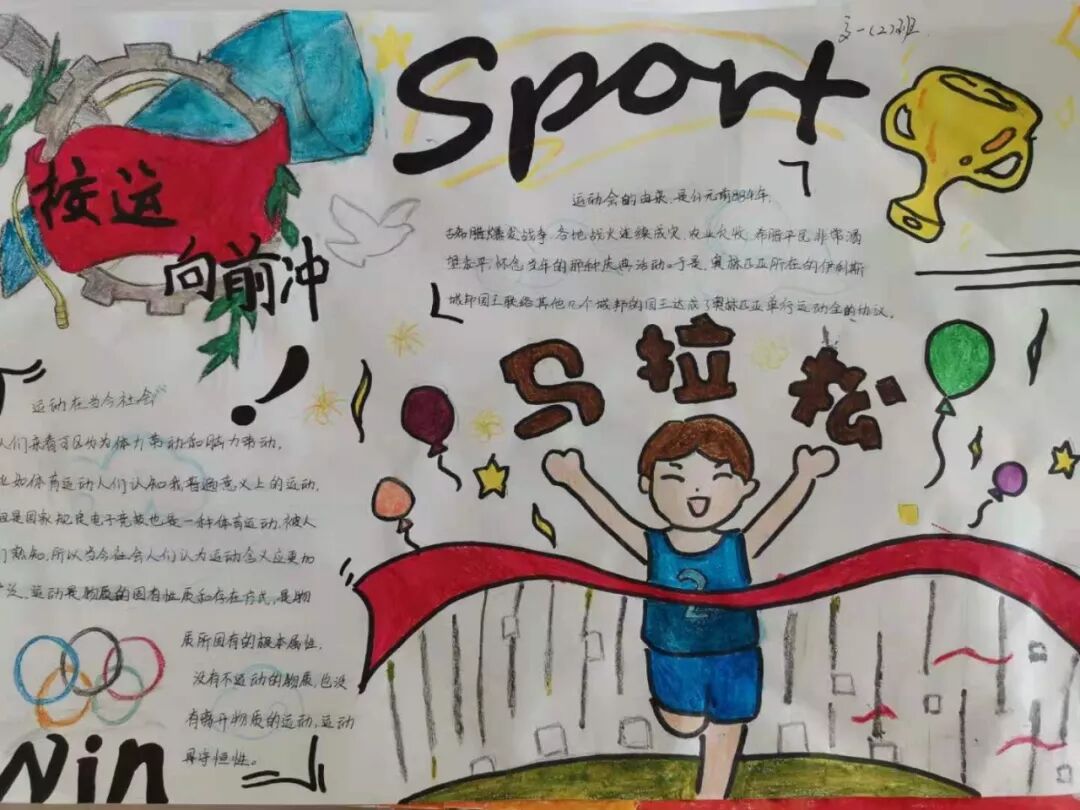 Sport
高一(2)班
校运
向前冲
运动会的由来,是公元前884年,
古希腊爆发战争,各地战火连续成灾,农业欠收,希腊平民非常渴
望和平,怀念当年的那种庆典活动。于是,奥林匹亚所在的伊利斯
城邦国王联络其他几个城邦的国王达成了奥林匹亚举行运动会的协议。
马拉松
运动在当今社会
人们来看可区分为体力劳动和脑力劳动,
比如体育运动人们认知我普遍意义上的运动,
但是国家规定电子竞技也是一种体育运动,被人
们熟知,所以当今社会人们认为运动含义应更加
广泛,运动是物质的固有性质和存在方式,是物
质所固有的根本属性,
没有不运动的物质,也没
有离开物质的运动,运动
具守恒性。
2
Win